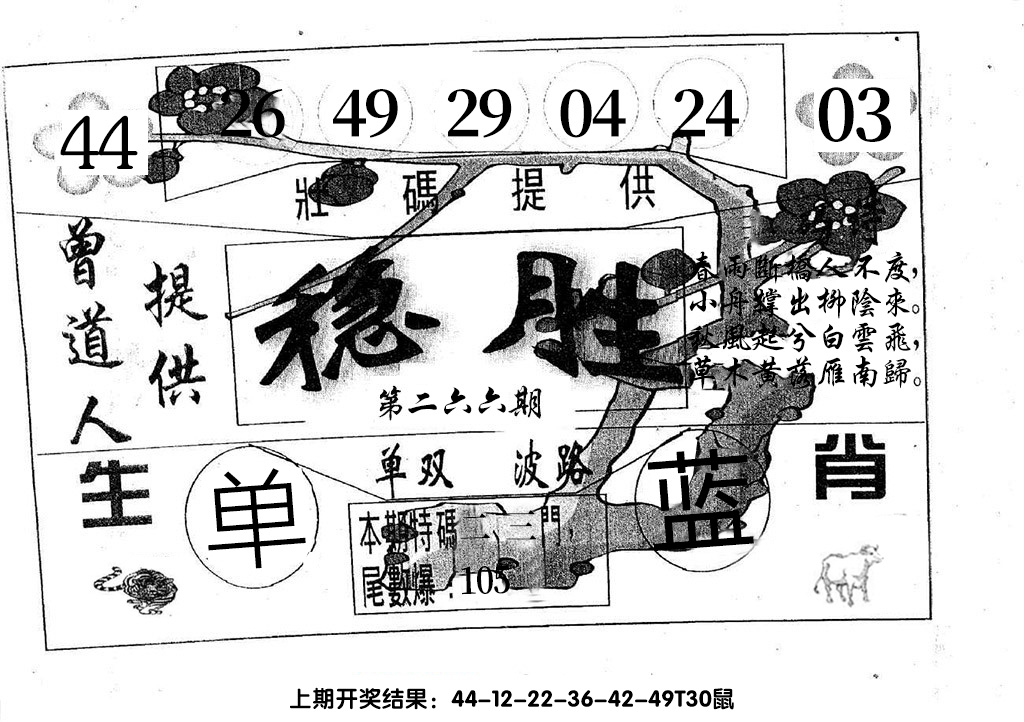 44 26 49 29 04 24 03
壯碼提供
曾道人
提供
稳胜
第二六六期
春雨斷橋人不度，
小舟撐出柳陰來。
秋風起兮白雲飛，
草木黃落雁南歸。
单双 波路
生肖
单
蓝
本期特碼二、三門，
尾數爆：105
上期开奖结果：44-12-22-36-42-49T30鼠